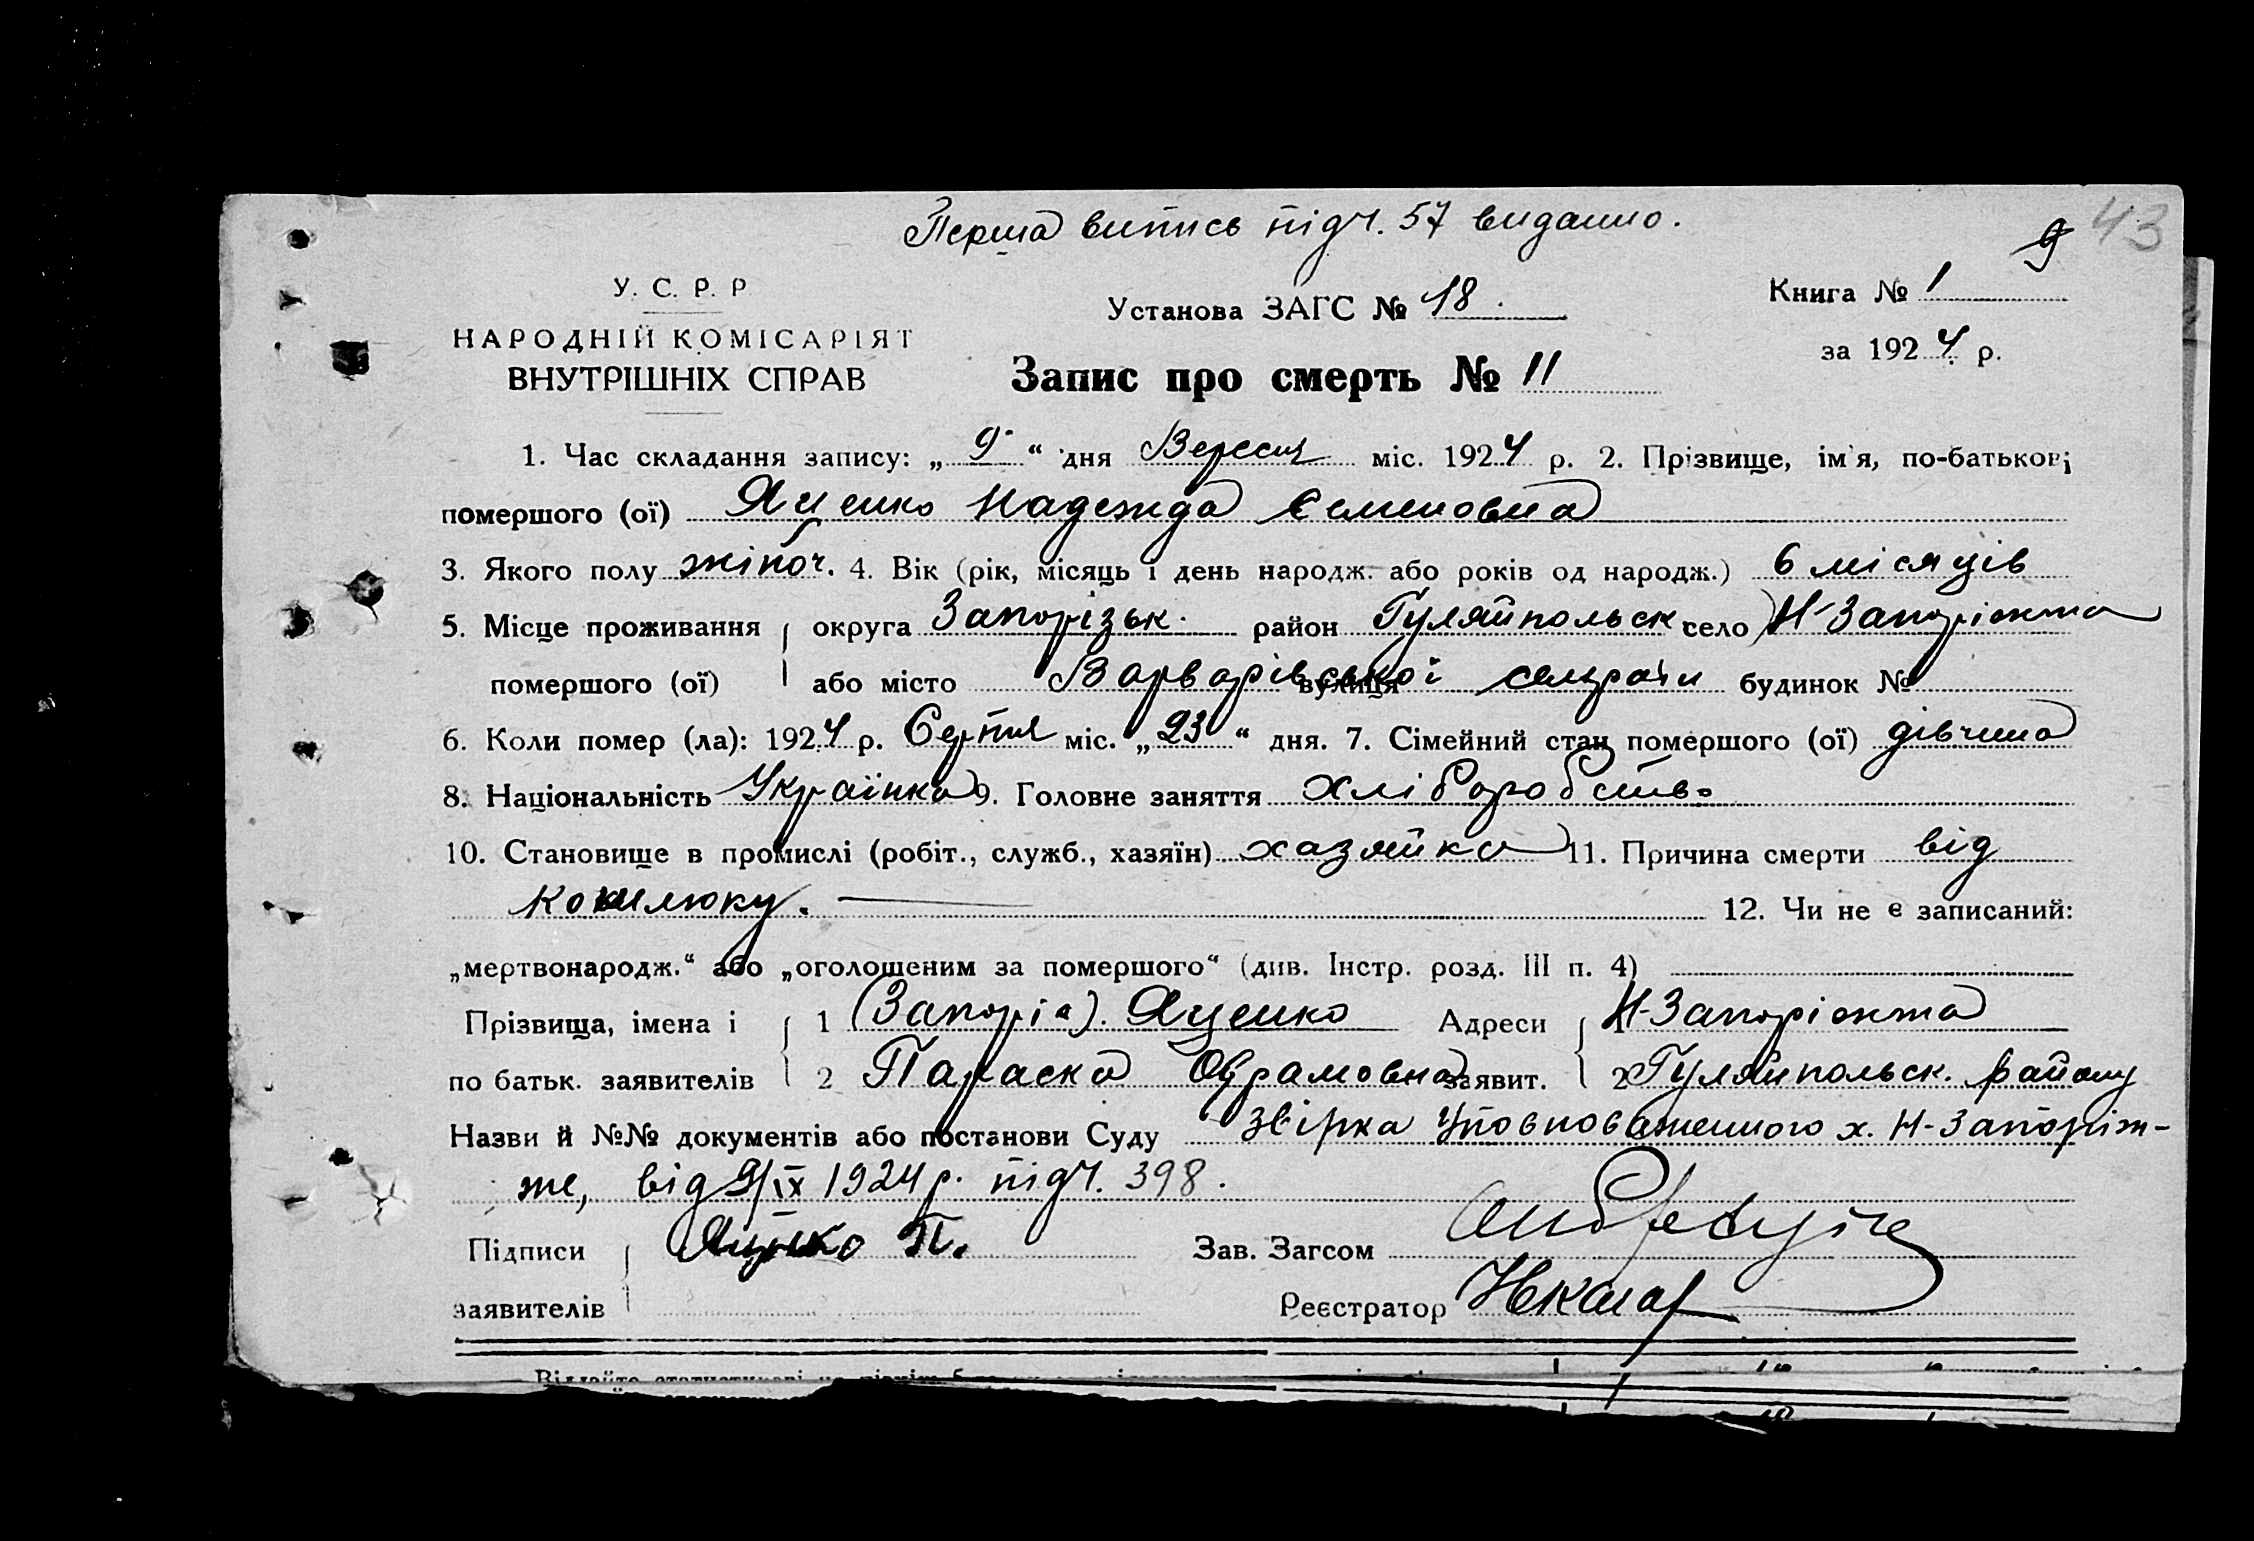 Перша випись під ч. 57 видано.
9 43
У. С. Р. Р
НАРОДНІЙ КОМІСАРІЯТ
ВНУТРІШНІХ СПРАВ
Установа ЗАГС № 18.
Запис про смерть № 11
Книга № 1
за 1924 р.
1. Час складання запису: „ 9 “ дня Вересня міс. 1924 р. 2. Прізвище, ім'я, по-батькові
помершого (ої) Яценко Надежда Семеновна
3. Якого полу жіноч. 4. Вік (рік, місяць і день народж. або років од народж.) 6 місяців
5. Місце проживання округа Запорізьк. район Гуляйпольськ село Н-Запоріжжа
помершого (ої) або місто Варварівської вулиця сельради будинок №
6. Коли помер (ла): 1924 р. Серпня міс. „23“ дня. 7. Сімейний стан помершого (ої) дівчина
8. Національність Українка 9. Головне заняття Хліборобство
10. Становище в промислі (робіт., служб., хазяїн) хазяйка 11. Причина смерти від
коклюку. 12. Чи не є записаний:
„мертвонародж.“ або „оголошеним за помершого“ (див. Інстр. розд. III п. 4)
Прізвища, імена і 1 Яценко Адреси 1 Н-Запоріжжа
по батьк. заявителів 2 Параска Оврамовна заявит. 2 Гуляйпольск. району
Назви й №№ документів або постанови Суду Звірка Уповноваженного х. Н-Запоріж-
же, від 9/IX 1924 р. під ч. 398.
Підписи П. Зав. Загсом
заявителів Реєстратор